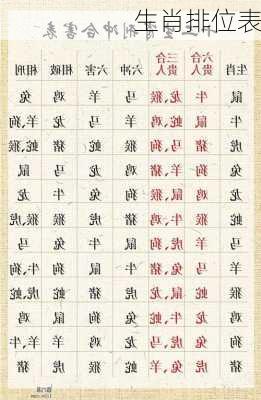 生肖排位表
刑冲合害
生肖 六合贵人 三合贵人 六冲 六害 相破 相刑
鼠 牛 龙,猴 马 羊 鸡 兔
牛 鼠 蛇,鸡 羊 马 龙 羊,狗
虎 猪 马,狗 猴 蛇 猪 猴,蛇
兔 狗 羊,猪 鸡 龙 马 鼠
龙 鸡 鼠,猴 狗 兔 牛 龙
蛇 猴 牛,鸡 猪 虎 猴 猴,虎
马 羊 虎,狗 鼠 牛 兔 马
羊 马 兔,猪 牛 鼠 狗 狗,牛
猴 蛇 鼠,龙 虎 猪 蛇 蛇,虎
鸡 龙 牛,蛇 兔 狗 鼠 鸡
狗 兔 虎,马 龙 鸡 羊 牛,羊
猪 虎 兔,羊 蛇 猴 虎 猪